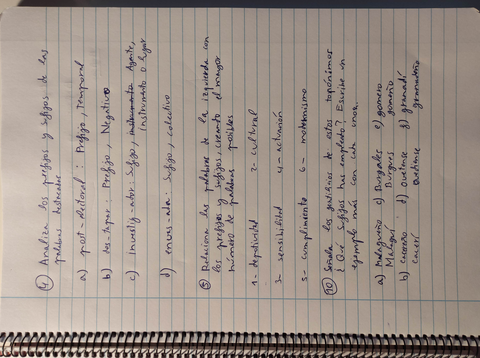 ④ Analiza los prefijos y sufijos de las
palabras
a) post-electoral : Prefijo, Temporal
b) des-tapar : Prefijo, Negativo
c) investig-ador : Sufijo, Agente,
Instrumento o lugar
d) envas-ada : Sufijo, colectivo
⑤ Relaciona las palabras de la izquierda con
los prefijos y sufijos, creando el mayor
número de palabras posibles
1- deportividad 2- cultural
3- sensibilidad 4- activación
5- cumplimiento 6- modernismo
⑩ Señala los gentilicios de estos topónimos
¿Qué sufijos has empleado? Escribe un
ejemplo más con cada uno.
a) Malagueño c) Burgales e) gomero
Malagui Burgues gomeño
b) cacereño d) Ourense f) granadí
Cacerí granadeño